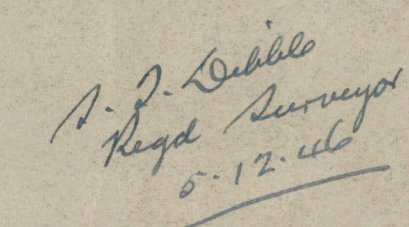 S. J. Dibble
Regd Surveyor
5.12.46